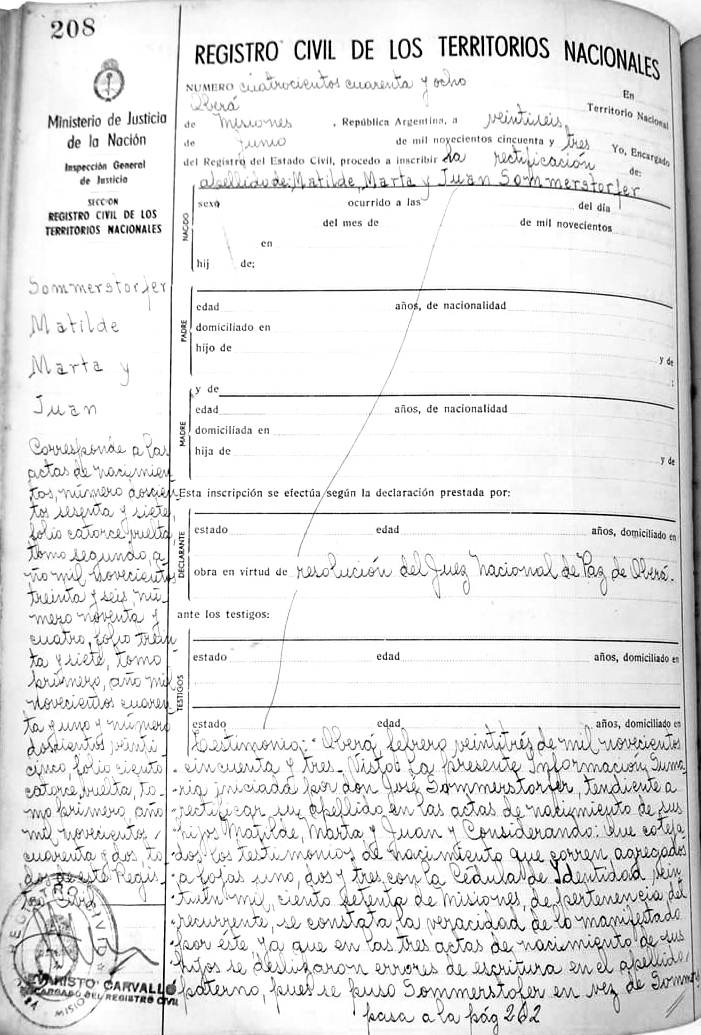 208
Ministerio de Justicia
de la Nación
Inspección General
de Justicia
SECCION
REGISTRO CIVIL DE LOS
TERRITORIOS NACIONALES
Sommerstorfer
Matilde
Marta y
Juan
Corresponde a las
actas de nacimien
tos, número doscien
tos sesenta y siete
folio catorce vuelta
tomo segundo, a
ño mil novecientos
treinta y seis, nú
mero noventa y
cuatro, folio trein
ta y siete, tomo
primero, año mil
novecientos cuaren
ta y uno y número
doscientos veinti
cinco, folio ciento
catorce vuelta, to
mo primero, año
mil novecientos
cuarenta y dos, to
dos de este Regis
tro Civil
CARVALLO
ENCARGADO DEL REGISTRO CIVIL
REGISTRO CIVIL DE LOS TERRITORIOS NACIONALES
NUMERO cuatrocientos cuarenta y ocho
En
Oberá
Territorio Nacional
de Misiones , República Argentina, a veintiseis
de Junio de mil novecientos cincuenta y tres Yo, Encargado
del Registro del Estado Civil, procedo a inscribir la rectificación de:
apellido de: Matilde, Marta y Juan Sommerstorfer
NACIDO
sexo ocurrido a las del día
del mes de de mil novecientos
en
hij de;
PADRE
edad años, de nacionalidad
domiciliado en
hijo de
y de
;
y de
MADRE
edad años, de nacionalidad
domiciliada en
hija de
y de
Esta inscripción se efectúa según la declaración prestada por:
DECLARANTE
estado edad años, domiciliado en
obra en virtud de resolución del Juez Nacional de Paz de Oberá.
ante los testigos:
TESTIGOS
estado edad años, domiciliado en
estado edad años, domiciliado en
Testimonio: Oberá, febrero veintitrés de mil novecientos
cincuenta y tres. Visto: La presente Información Suma
ria iniciada por don José Sommerstorfer, tendiente a
rectificar su apellido en las actas de nacimiento de sus
hijos Matilde, Marta y Juan y Considerando: Que coteja
dos los testimonios de nacimiento que corren agregados
a fojas uno, dos y tres con la Cédula de Identidad vein
tiún mil, ciento setenta de Misiones, de pertenencia del
recurrente, se constata la veracidad de lo manifestado
por éste ya que en las tres actas de nacimiento de sus
hijos se deslizaron errores de escritura en el apellido
paterno, pues se puso Sommerstofer en vez de Sommers
pasa a la pág 202